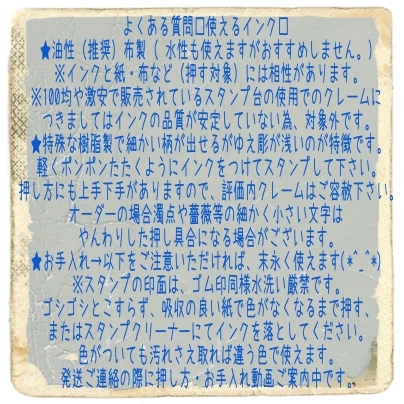 よくある質問□使えるインク□
★油性（推奨）布製（ 水性も使えますがおすすめしません。)
※インクと紙・布など（押す対象）には相性があります。
※100均や激安で販売されているスタンプ台の使用でのクレームに
つきましてはインクの品質が安定していない為、対象外です。
★特殊な樹脂製で細かい柄が出せるがゆえ彫が浅いのが特徴です。
軽くポンポンたたくようにインクをつけてスタンプして下さい。
押し方にも上手下手がありますので、評価内クレームはご容赦下さい。
オーダーの場合濁点や薔薇等の細かく小さい文字は
やんわりした押し具合になる場合がございます。
★お手入れ→以下をご注意いただければ、末永く使えます(*^_^*)
※スタンプの印面は、ゴム印同様水洗い厳禁です。
ゴシゴシとこすらず、吸収の良い紙で色がなくなるまで押す、
またはスタンプクリーナーにてインクを落としてください。
色がついても汚れさえ取れば違う色で使えます。
発送ご連絡の際に押し方・お手入れ動画ご案内中です。。